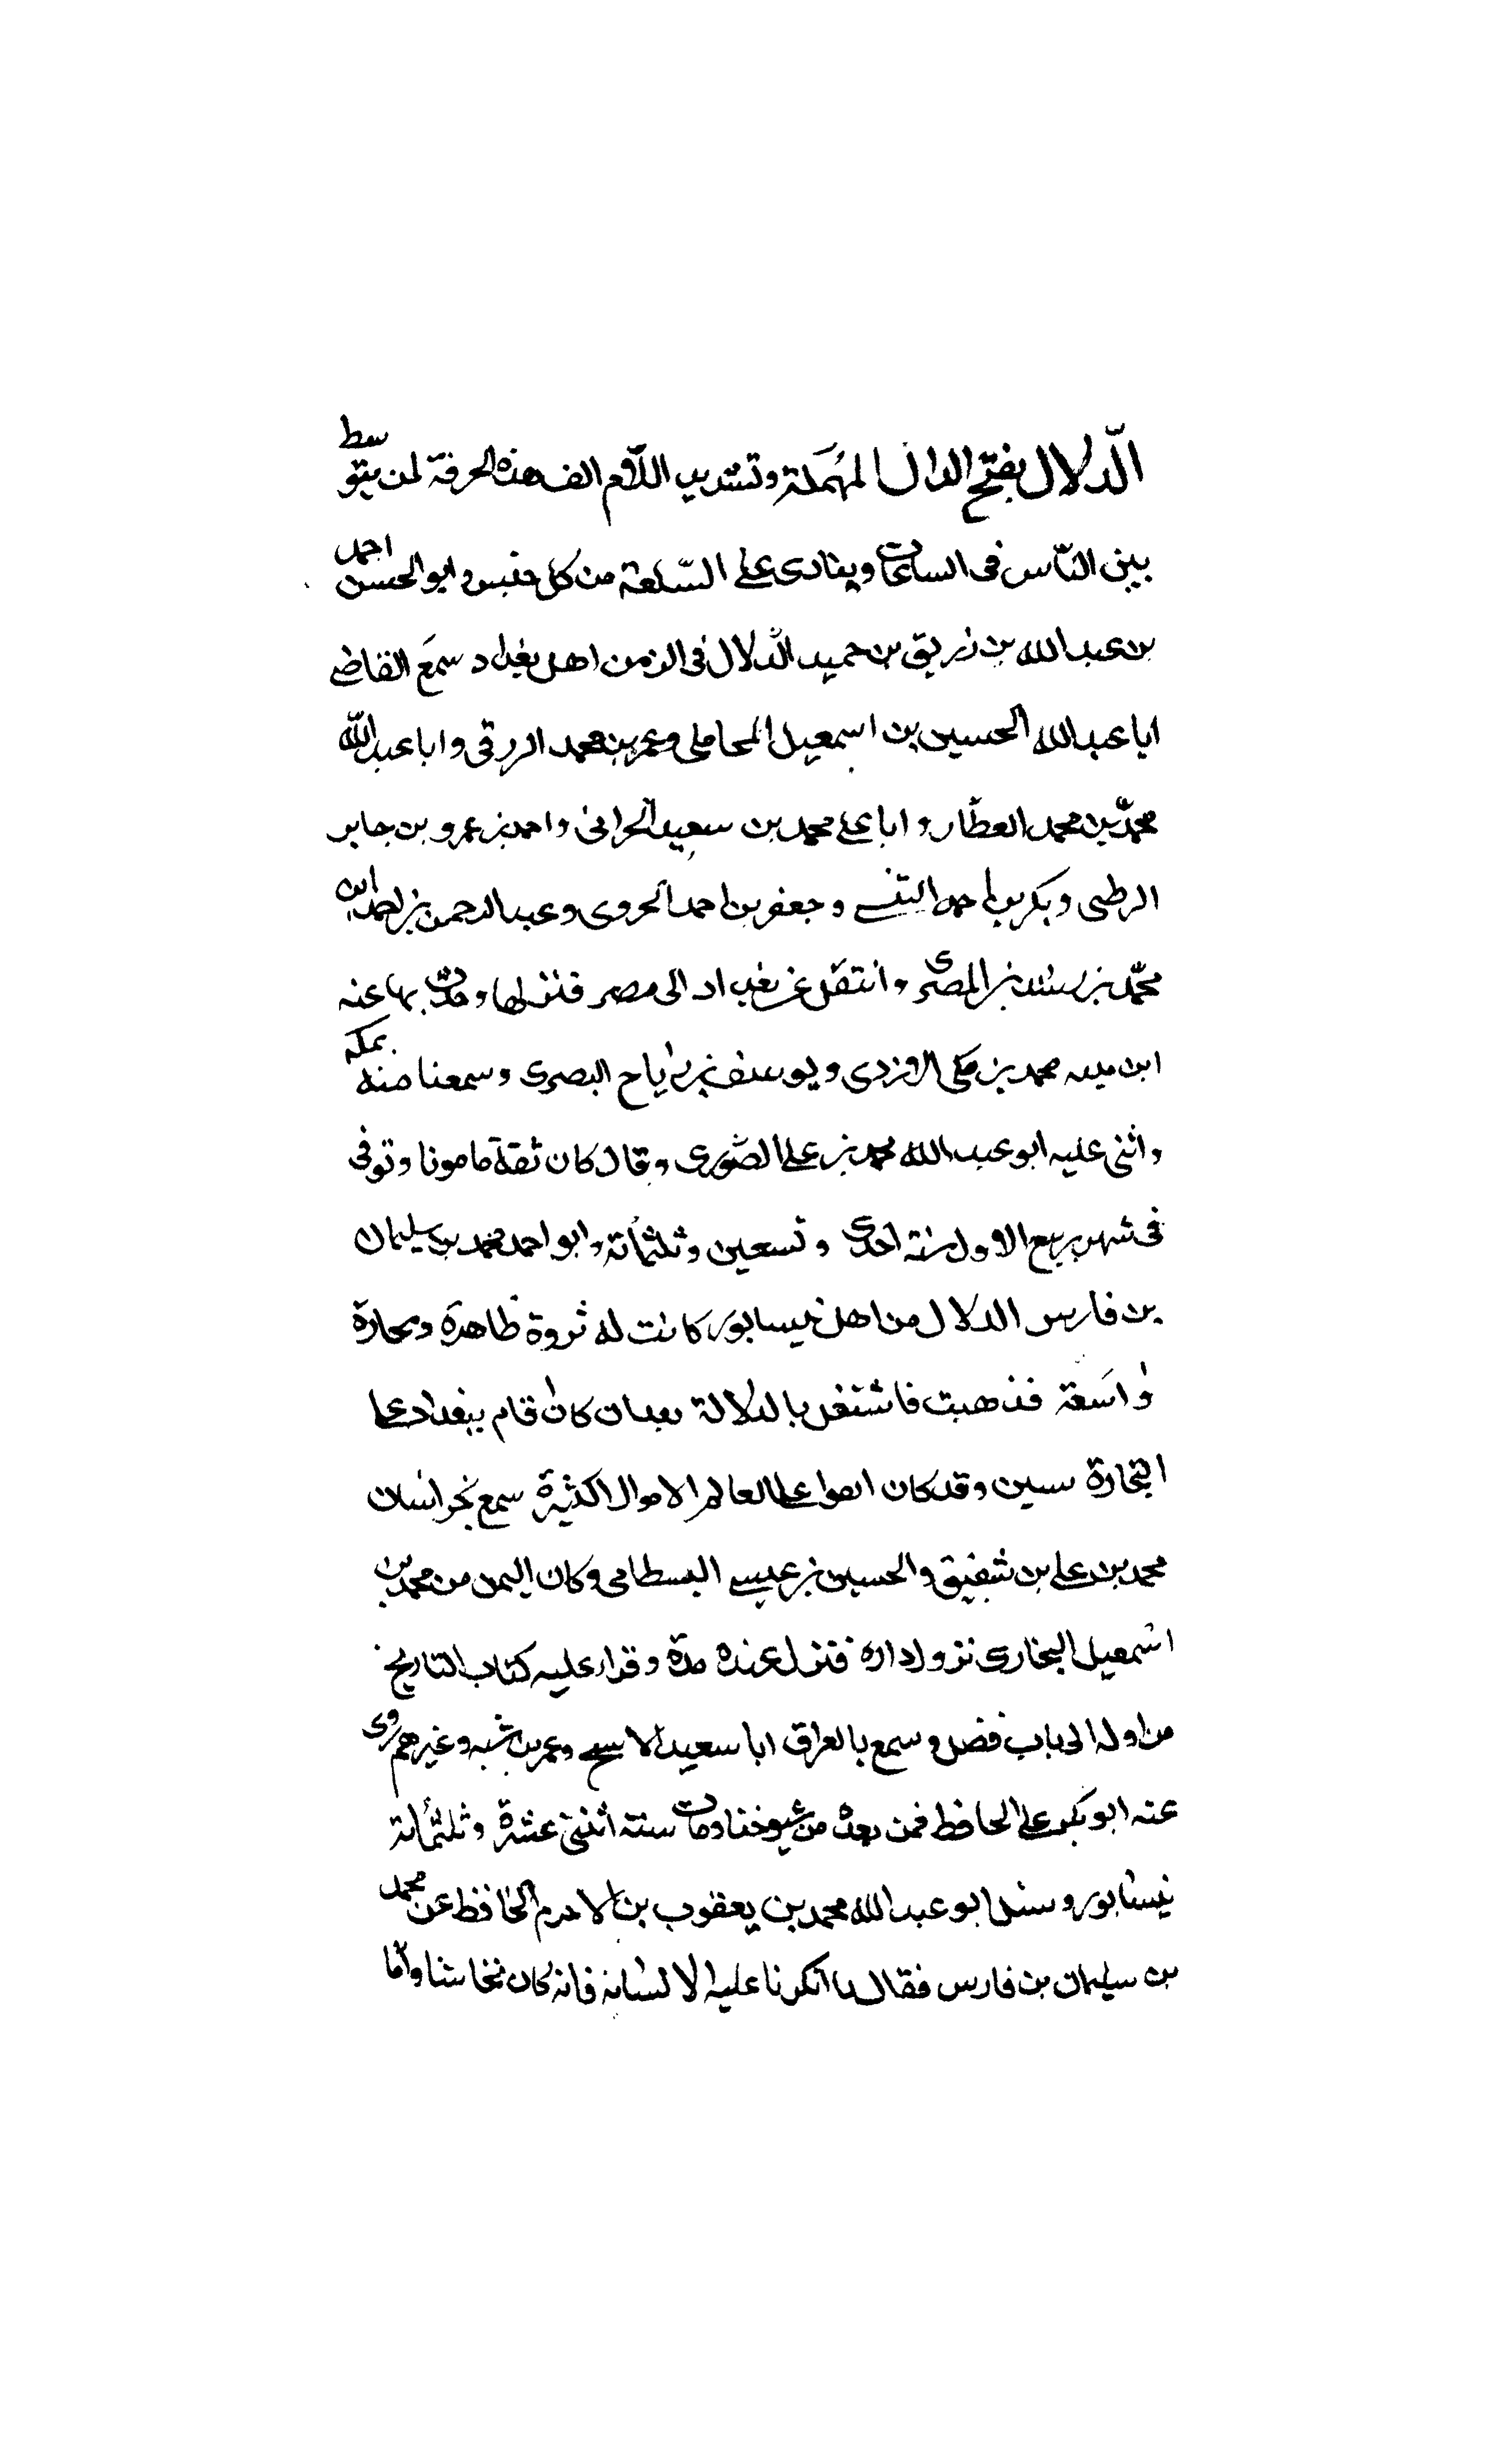 الّدلال بفتح الدال المهَملة وتشديد اللّام الف هذه الحرفة لمن يتوسط
بين النّاس فى الساعات وينادى على السّلعة من كل جنس وابو الحسن احمد
بن عبد الله بن زريق بن حميد الّدلال فى الزمن اهل بغداد سمَع القاضى
ابا عبد الله الحسين بن اسمعيل المحاملى وعمر بن محمد الزرقى وابا عبد اللّه
محمّد بن محمد العطّار وابا على محمد بن سعيد الحرانى واحمد بن عمرو بن جابر
الرطى وبكر بن احمد التنسى وجعفر بن احمد الحروى وعبد الرحمن بن احمد ابن
محمّد بن رشدين المصرى وانتقل عن بغداد الى مصر فنزلها وحدث بها عنه
ابن محمد بن مكى الازدى ويوسف بن رياح البصرى وسمعنا منه بمكه
واثنى عليه ابو عبد الله محمد بن على الصّورى وقال كان ثقة مامونا وتوفى
فى شهر ربيع الاول سنة احدى وتسعين وثلثمائة وابو احمد محمد بن سليمان
بن فارس الدلال من اهل نيسابور كانت له ثروة ظاهرة وتجارة
واسَعة فذهبت فاشتغل بالدلالة بعد ان كان اقام ببغداد على
التجارة سنين وقد كان على العالم الاموال الكثيرة سمع بخراسان
محمد بن على بن شفيق والحسين بن عيسى البسطامى وكان اليمن من محمد بن
اسمعيل البخارى نزول داره فنزل عنده مدّة وقراء عليه كتاب التاريخ
من اوله الى باب فضل وسمع بالعراق ابا سعيد الاشج وعمر بن شبه وغيرهم روى
عنه ابو بكر على الحافظ فمن بعده من شيوخنا ومات سنة اثنتى عشرة وثلثمائة
نيسابور وسئل ابو عبد الله محمد بن يعقوب بن الاخرم الحافظ عن محمد
بن سليمان بن فارس فقال ما انكرنا عليه الا لسانه فانه كان فحاشا واما